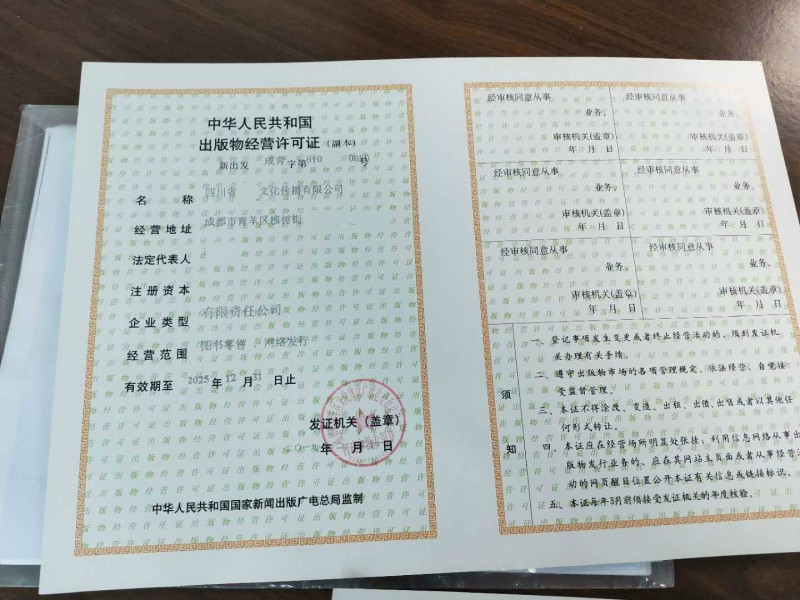 中华人民共和国
出版物经营许可证（副本）
新出发 成青 字第 号
名 称 四川省 文化传播有限公司
经营地址 成都市青羊区
法定代表人
注册资本
企业类型 有限责任公司
经营范围 图书零售 网络发行
有效期至 2025年12月31日止
发证机关（盖章）
年 月 日
中华人民共和国国家新闻出版广电总局监制
经审核同意从事
业务。
审核机关(盖章)
年 月 日
经审核同意从事
业务。
审核机关(盖章)
年 月 日
经审核同意从事
业务。
审核机关(盖章)
年 月 日
经审核同意从事
业务。
审核机关(盖章)
年 月 日
经审核同意从事
业务。
审核机关(盖章)
年 月 日
经审核同意从事
业务。
审核机关(盖章)
年 月 日
须知
一、登记事项发生变更或者终止经营活动的，须到发证机
关办理有关手续。
二、遵守出版物市场的各项管理规定，依法经营，自觉接
受监督管理。
三、本证不得涂改、变造、出租、出借、出售或者以其他任
何形式转让。
四、本证应在经营场所明显处张挂，利用信息网络从事出
版物发行业务的，应在其网站主页面或者从事经营活
动的网页醒目位置公开本证有关信息或链接标识。
五、本证每年3月前须接受发证机关的年度核验。